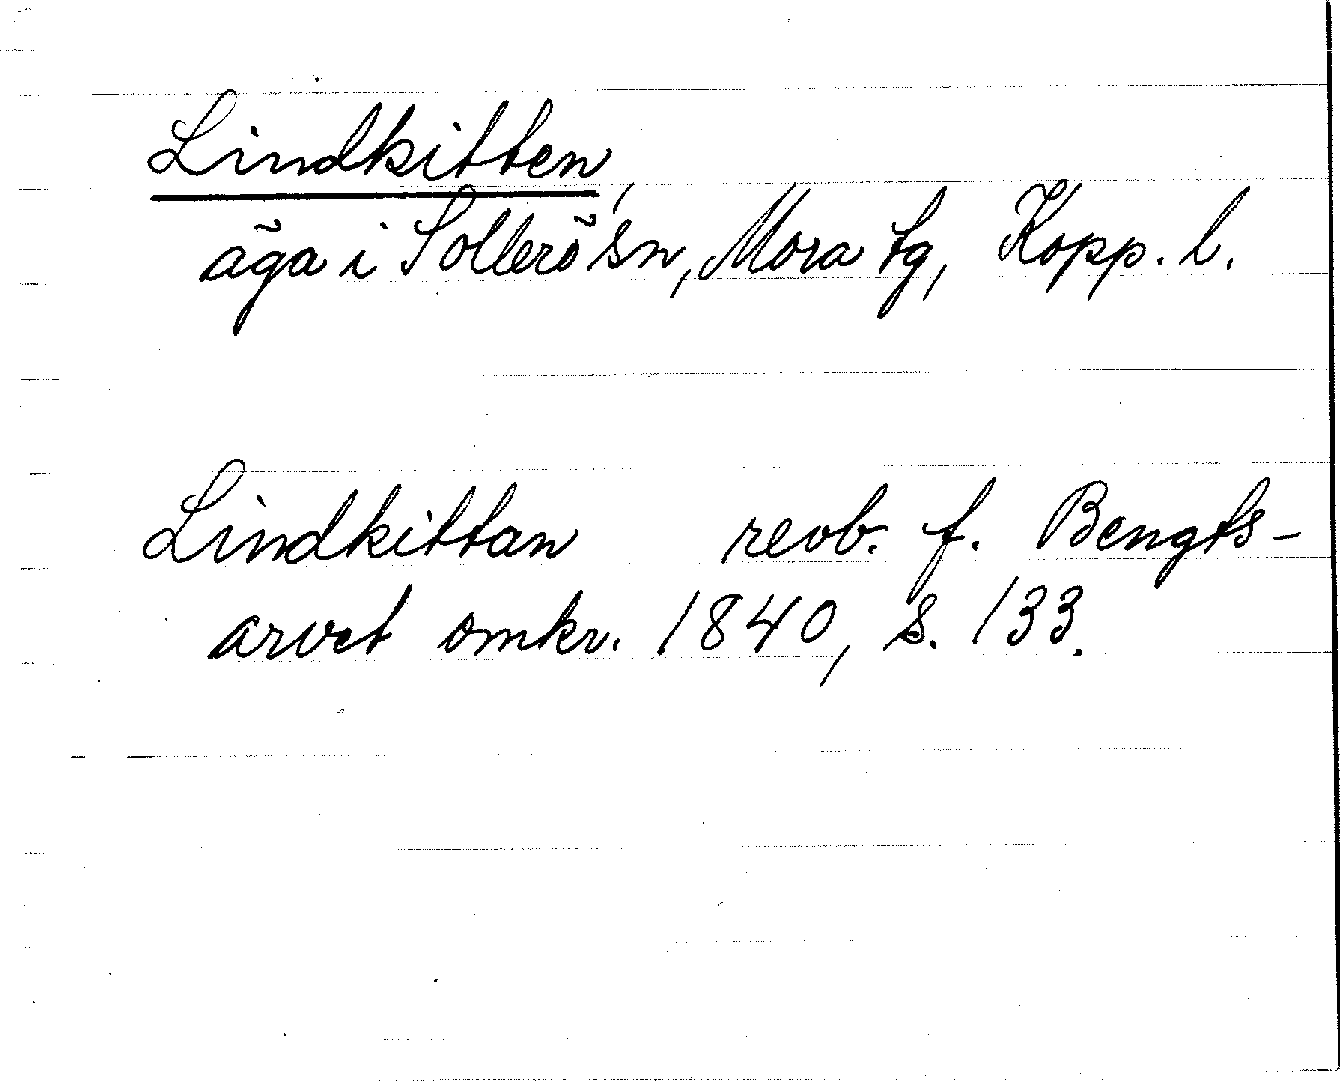 Lindkitten,
äga i Sollerö sn, Mora tg, Kopp. l.
Lindkittan revb. f. Bengts-
arvet omkr. 1840, s. 133.